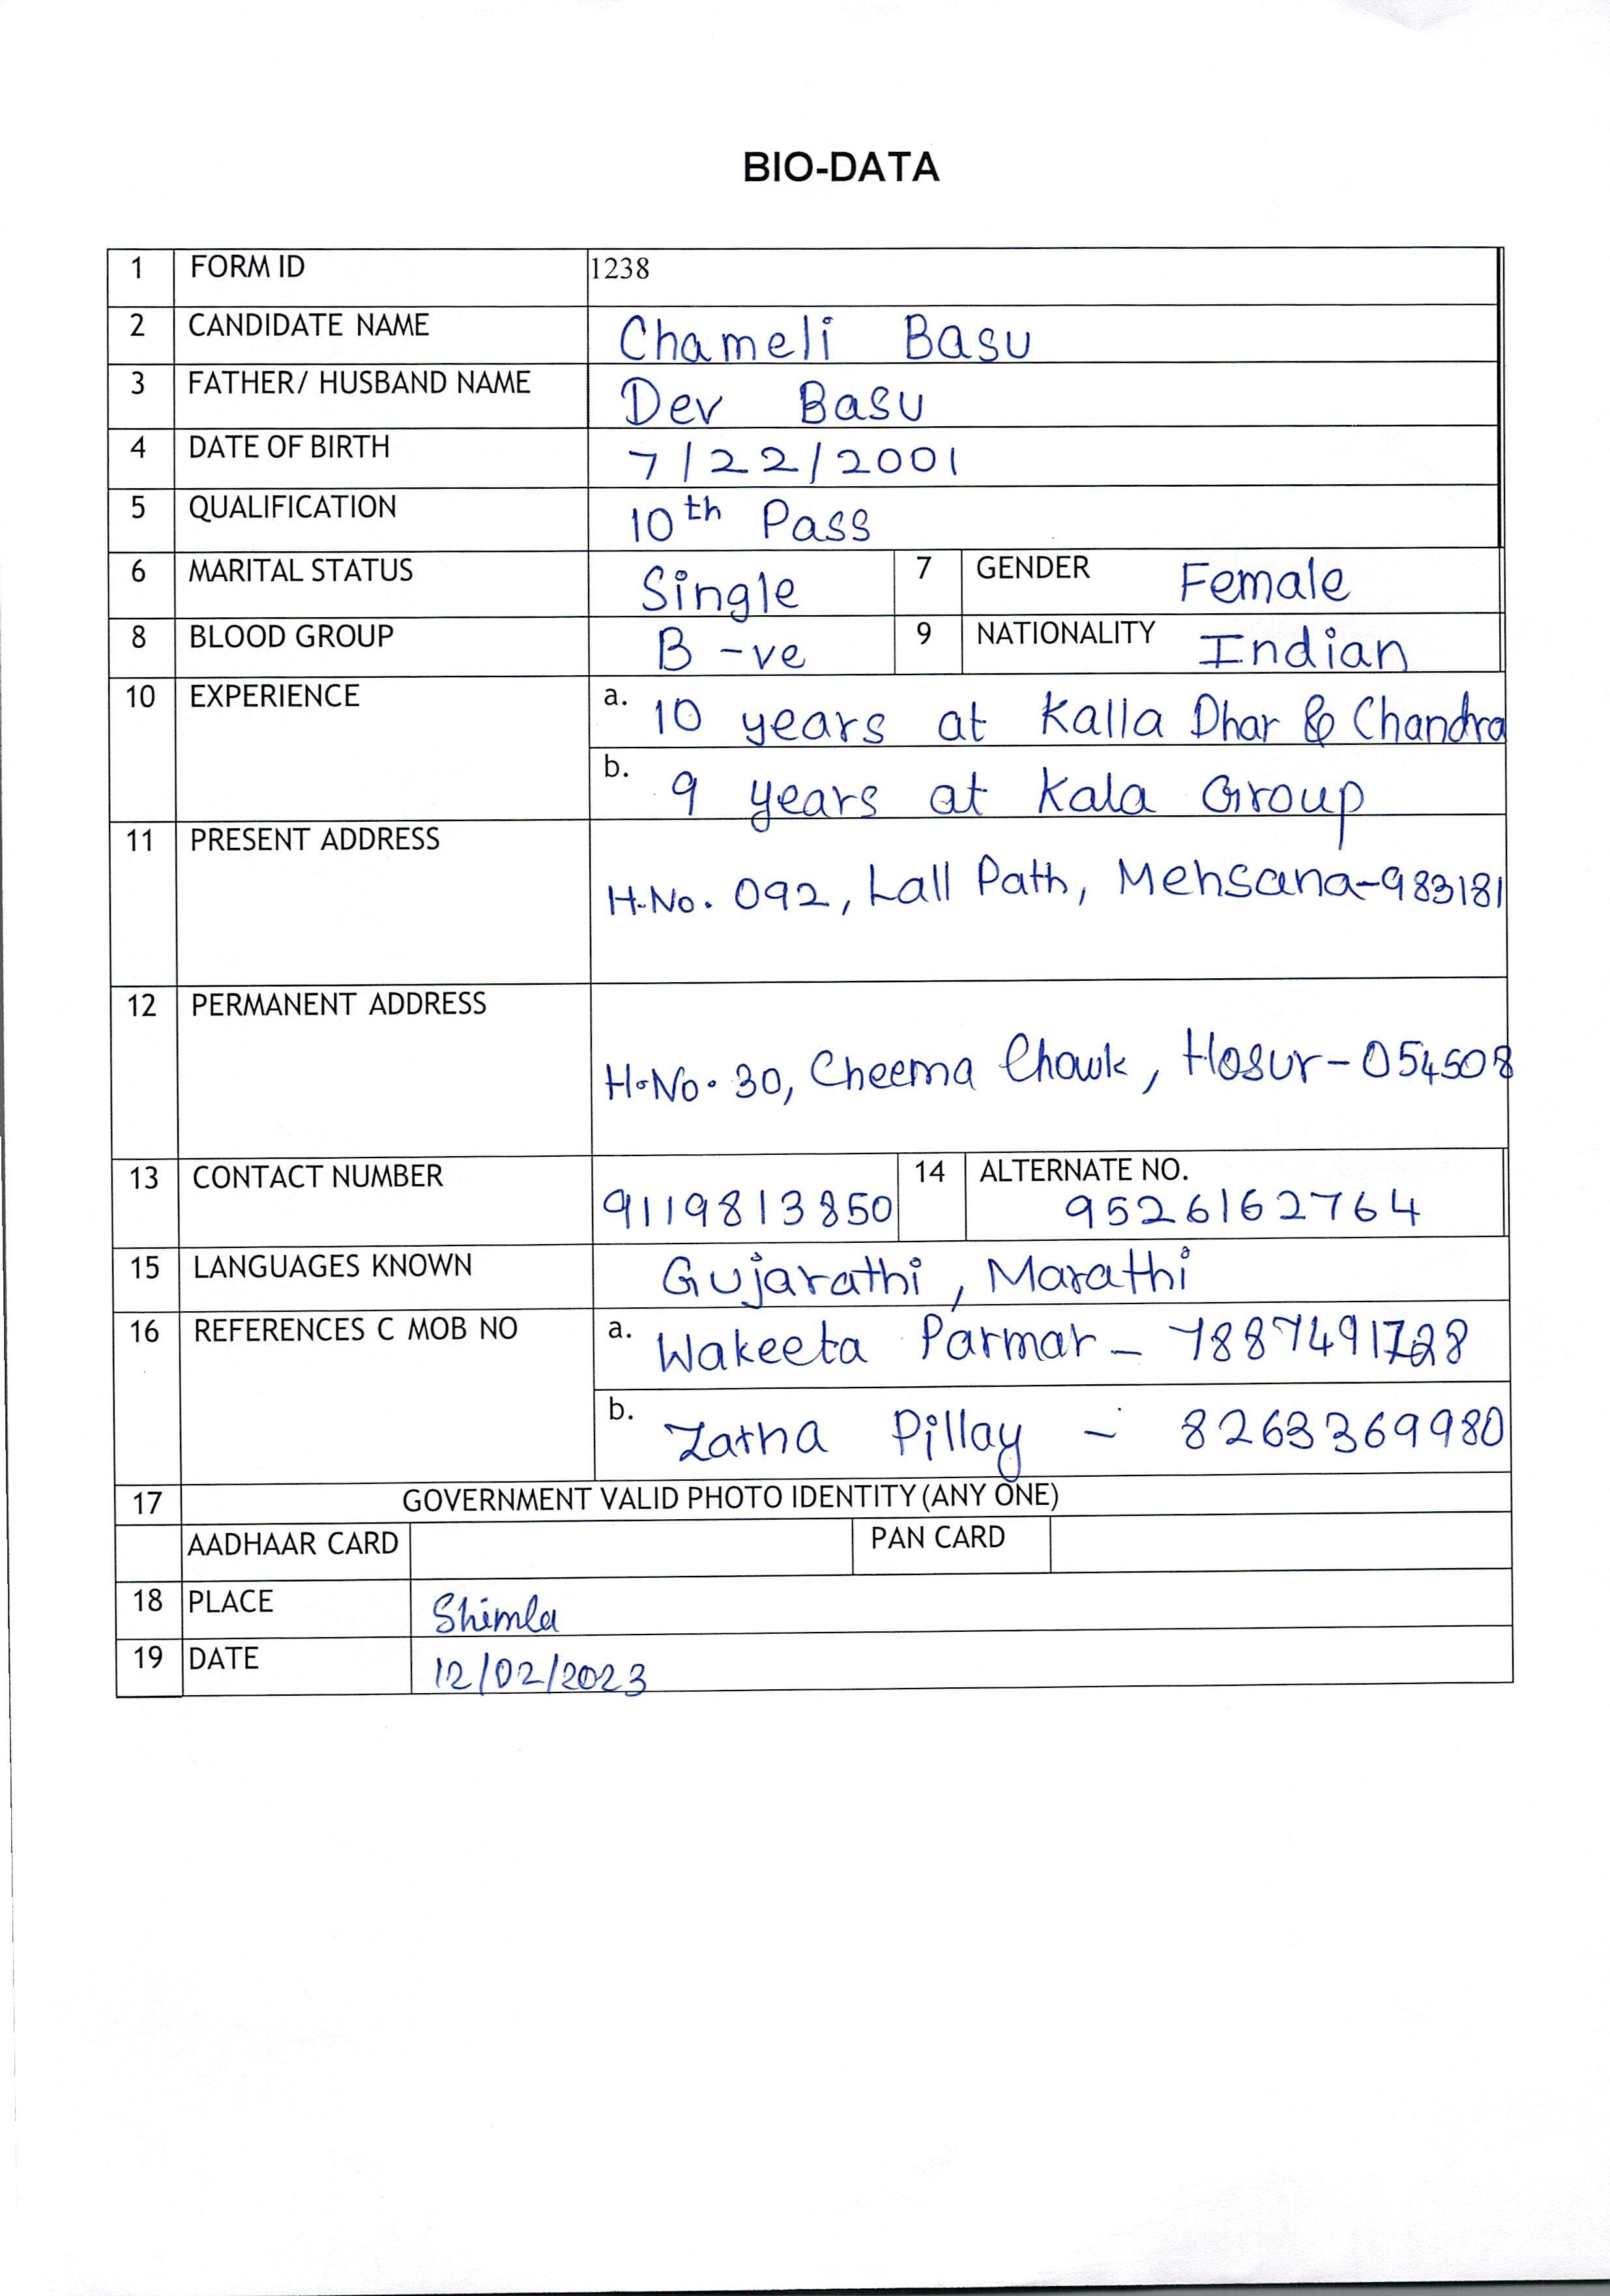 BIO-DATA
1 FORM ID 1238
2 CANDIDATE NAME Chameli Basu
3 FATHER/ HUSBAND NAME Dev Basu
4 DATE OF BIRTH 7/22/2001
5 QUALIFICATION 10th Pass
6 MARITAL STATUS Single 7 GENDER Female
8 BLOOD GROUP B -ve 9 NATIONALITY Indian
10 EXPERIENCE a. 10 years at Kalla Dhar & Chandra
b. 9 years at Kala Group
11 PRESENT ADDRESS
H.No. 092, Lall Path, Mehsana-983181
12 PERMANENT ADDRESS
H.No. 30, Cheema Chowk, Hosur-054508
13 CONTACT NUMBER 9119813850 14 ALTERNATE NO. 9526162764
15 LANGUAGES KNOWN Gujarathi, Marathi
16 REFERENCES C MOB NO a. Wakeeta Parmar - 7887491728
b. Zarna Pillay - 8263369980
17 GOVERNMENT VALID PHOTO IDENTITY (ANY ONE)
AADHAAR CARD PAN CARD
18 PLACE Shimla
19 DATE 12/02/2023